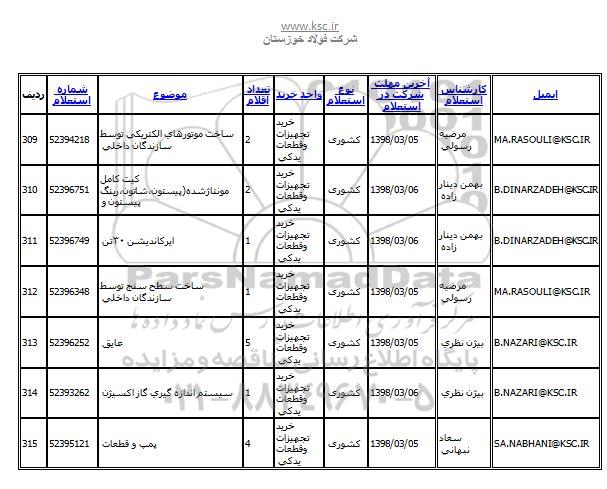 www.ksc.ir
شرکت فولاد خوزستان
ردیف شماره استعلام موضوع تعداد اقلام واحد خرید نوع استعلام آخرین مهلت شرکت در استعلام کارشناس استعلام ایمیل
309 52394218 ساخت موتورهای الکتریکی توسط سازندگان داخلی 2 خرید تجهیزات وقطعات یدکی کشوری 1398/03/05 مرضیه رسولی MA.RASOULI@KSC.IR
310 52396751 کیت کامل مونتاژشده(پیستون،شاتون،رینگ پیستون و 2 خرید تجهیزات وقطعات یدکی کشوری 1398/03/06 بهمن دینار زاده B.DINARZADEH@KSC.IR
311 52396749 ایرکاندیشن ۲۰تن 1 خرید تجهیزات وقطعات یدکی کشوری 1398/03/06 بهمن دینار زاده B.DINARZADEH@KSC.IR
312 52396348 ساخت سطح سنج توسط سازندگان داخلی 1 خرید تجهیزات وقطعات یدکی کشوری 1398/03/05 مرضیه رسولی MA.RASOULI@KSC.IR
313 52396252 عایق 5 خرید تجهیزات وقطعات یدکی کشوری 1398/03/05 بیژن نظری B.NAZARI@KSC.IR
314 52393262 سیستم اندازه گیری گاز اکسیژن 1 خرید تجهیزات وقطعات یدکی کشوری 1398/03/06 بیژن نظری B.NAZARI@KSC.IR
315 52395121 پمپ و قطعات 4 خرید تجهیزات وقطعات یدکی کشوری 1398/03/05 سعاد نبهانی SA.NABHANI@KSC.IR
ParsNamadData
پایگاه اطلاع رسانی مناقصه و مزایده